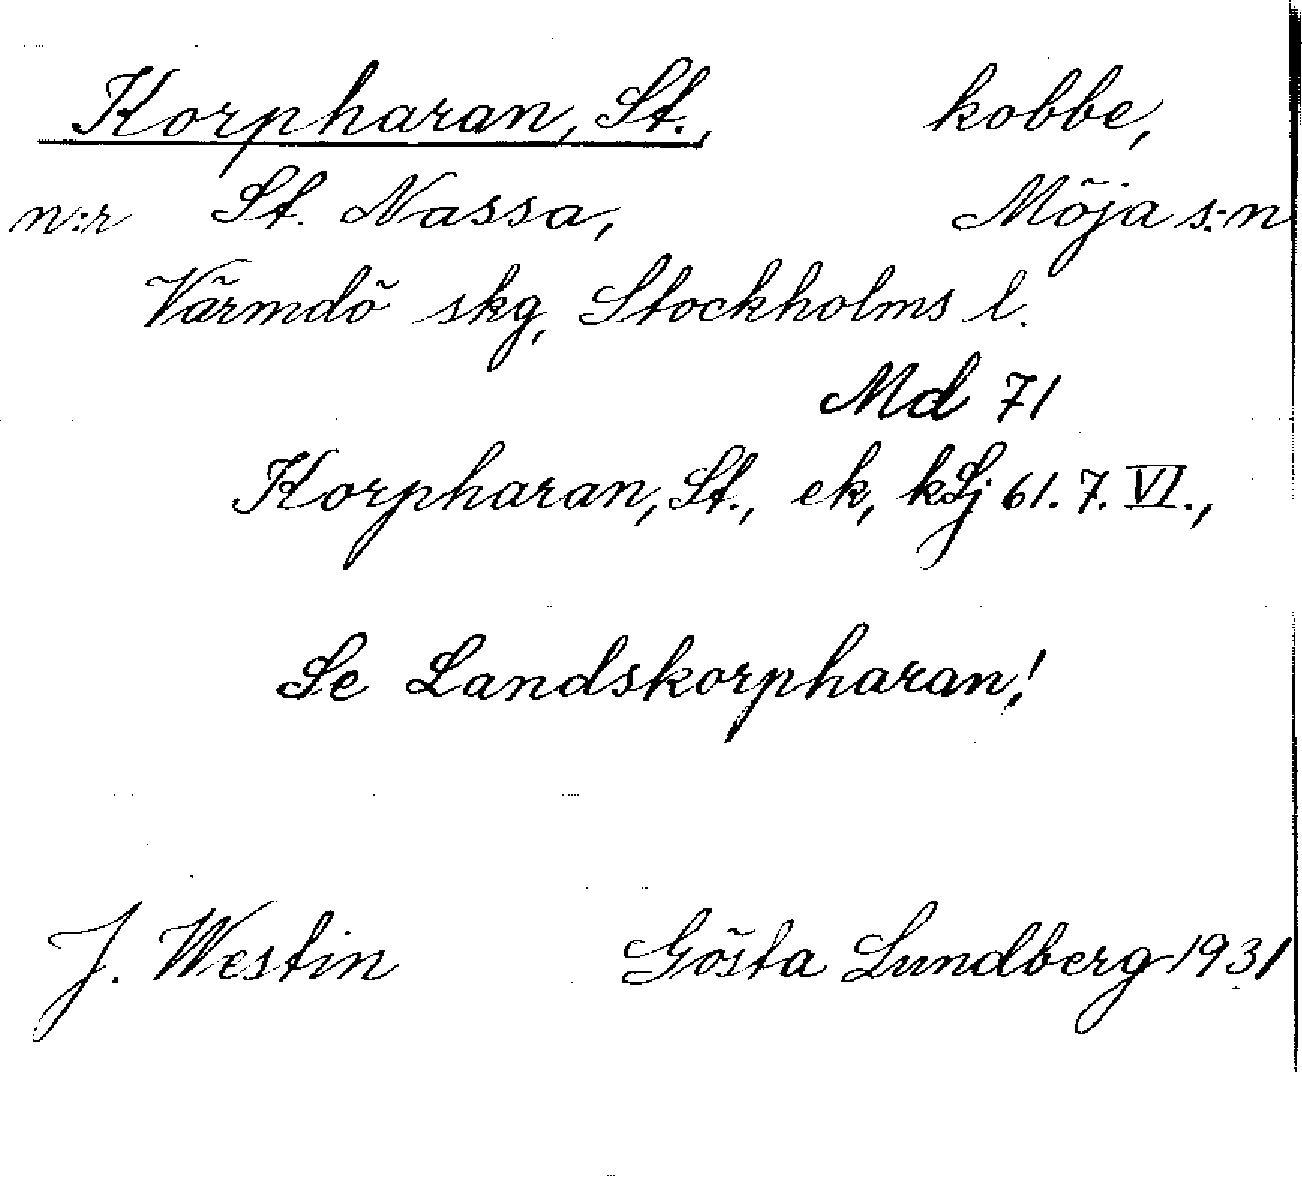 Korpharan, St., kobbe,
n:r St. Nassa, Möja s:n
Värmdö skg, Stockholms l.
Md 71
Korpharan, St., ek, kSj 61. 7. VI.,
Se Landskorpharan!
J. Westin Gösta Lundberg 1931